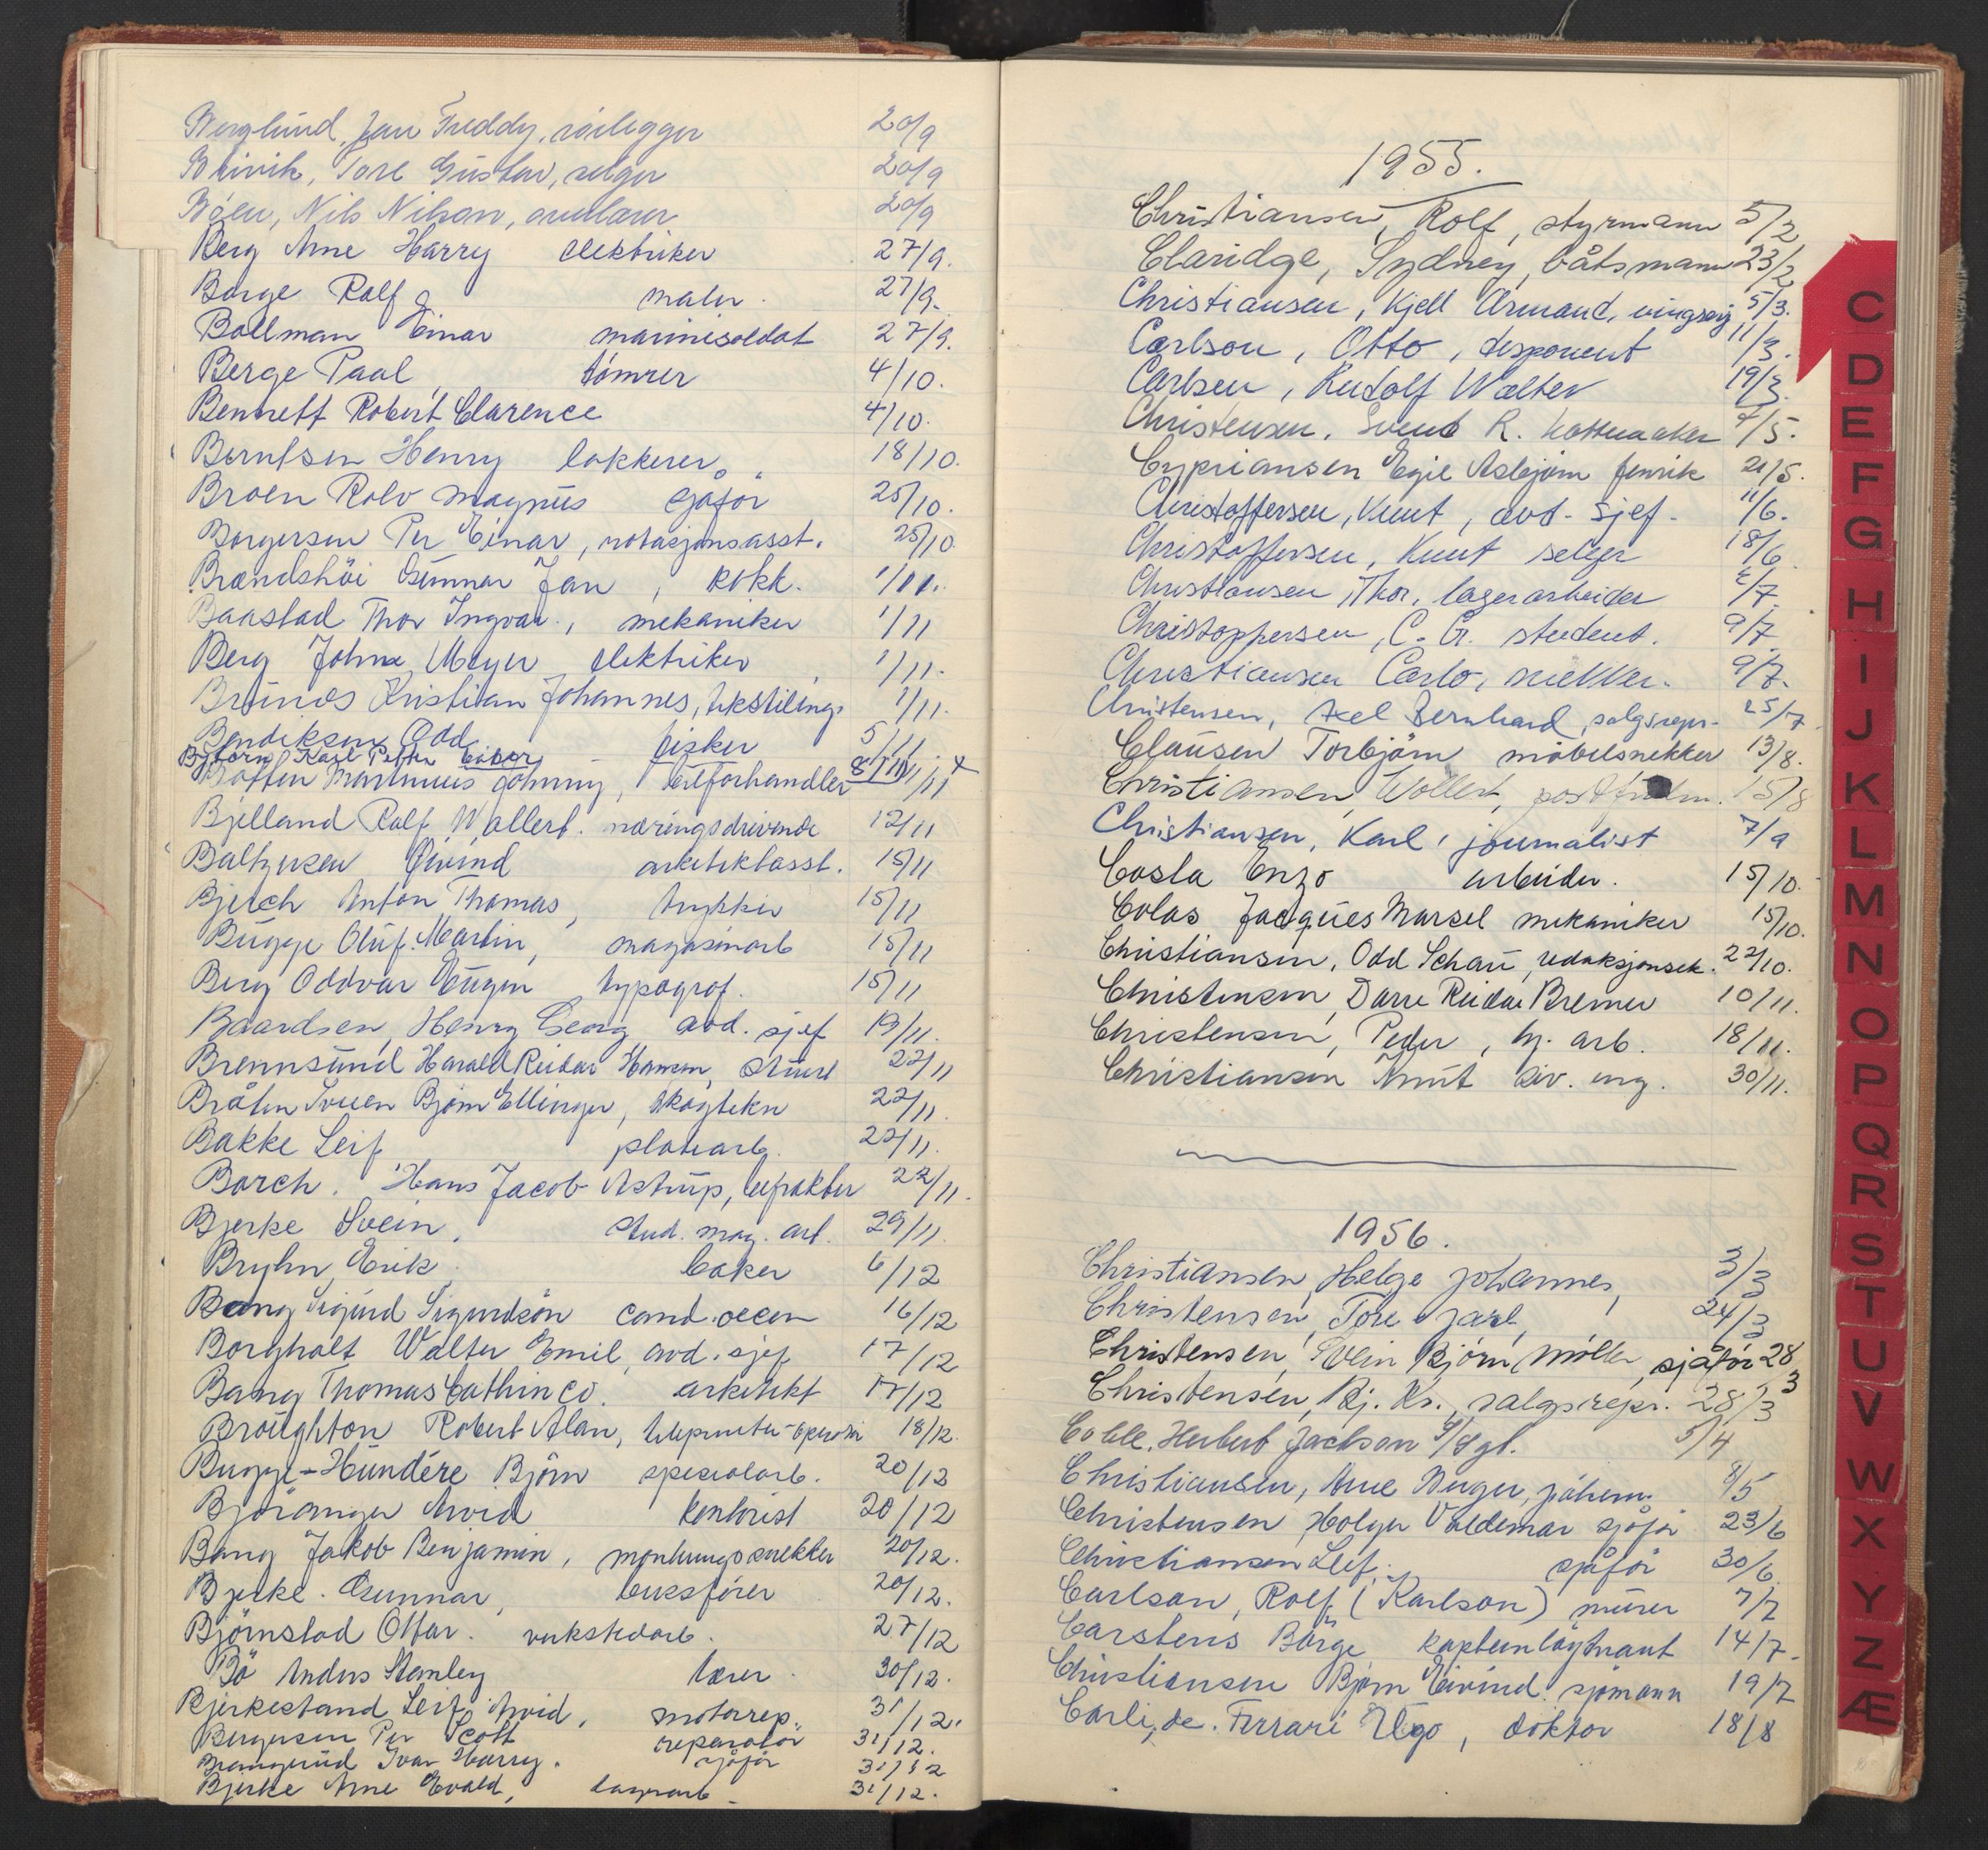 Berglund, Jan Freddy, rørlegger 20/9
Breivik, Tore Gustav, selger 20/9
Bøen, Nils Nilsen, 20/9
Berg Arne Harry elektriker 27/9.
Borge Rolf maler. 27/9.
Bollman Einar marinesoldat 27/9.
Berge Paal tömrer 4/10.
Bennett Robert Clarence 4/10.
Berntsen Henry lakkerer 18/10.
Broen Rolv Magnus sjåför 25/10.
Borgersen Per Einar, rotasjonsasst. 25/10.
Brændshöi Gunnar Jan, kokk. 1/11.
Baastad Thor Ingvar, mekaniker 1/11
Berg Johnx Meyer elektriker 1/11.
Kristian Johannes, tekstiling. 1/11.
Bendiksen Odd fisker 5/11
Björn Karl Petter Eiber 8/11
Martinius Johnny, bilforhandler 11/11
Bjelland Rolf Wollert. næringsdrivende 12/11
Baltzersen Öivind arkitektasst. 15/11
Bjerch Anton Thomas, trykker 15/11
Bugge Oluf Martin, magasinarb 15/11
Berg Oddvar Eugen typograf. 15/11
Baardsen, Henry Georg avd. sjef 19/11.
Brennsund Harald Reidar Hansen, 22/11
Bråten Björn Ellinger, skogtekn 22/11.
Bakke Leif platearb. 22/11.
Borch. Hans Jacob Astrup, 22/11.
Bjerke Svein, stud. mag. art. 29/11.
Bryhn, Erik. baker 6/12
Bang Sigurd Sigurdsön cand. oecon 16/12
Borgholt Walter Emil, avd. sjef 17/12
Bang Thomas Cathinco. arkitekt 17/12
Broughton Robert Alan, teleprinter-operatör 18/12.
Bugge-Hundére Björn spesialarb. 20/12
Björanger Arvid kontorist 20/12
Bang Jakob Benjamin, monteringssnekker 20/12.
Bjerke. Gunnar, bussförer 20/12.
Björnstad Ottar. verkstedarb. 27/12
Bö Anders Stanley lærer. 30/12.
Bjerkestand Leif Arvid, motorrep. 31/12.
Bergersen Per Scott reparatör 31/12.
Brangerud Ivar Harry. sjåför 31/12
Bjerke Arne Evald, lagerarb. 31/12.
1955.
Christiansen, Rolf, styrmann 5/2
Claridge, Sydney, båtsmann 23/2
Christiansen, Kjell Armand, 5/3.
Carlson, Otto, disponent 11/3.
Carlsen, Rudolf Walter 19/3.
Christensen, Svend R. hattemaker 4/5.
Cypriansen Egil Asbjörn fenrik 21/5.
Christoffersen, Knut, avd. sjef. 11/6.
Christoffersen, Knut selger 18/6.
Christiansen, Thor, lagerarbeider 2/7.
Christoppersen, C. G. student. 9/7.
Christiansen Carlo, snekker. 9/7.
Christensen, Axel Bernhard, salgsrepr. 25/7
Clausen Torbjörn möbelsnekker 13/8.
Christiansen, Wollert, 15/8
Christiansen, Karl, journalist 7/9
Costa Enzo arbeider. 15/10.
Colas Jacques Marsel mekaniker 15/10.
Christiansen, Odd Schau, redaksjonsek. 22/10.
Christensen, Darre Reidar Bremer 10/11.
Christensen, Peder, hj. arb. 18/11.
Christiansen Knut siv. ing. 30/11.
1956.
Christiansen, Helge Johannes, 3/3
Christensen, Tore Jarl, 24/3
Christensen, Svein Björn Möller, sjåför 28/3
Christensen, Kj. Kr., salgsrepr. 28/3
Coble, Herbert Jackson S/Sgt. 5/4
Christiansen, Arne Unger, 8/5
Christensen, Holger Valdemar sjåför 23/6
Christiansen Leif, sjåför 30/6.
Carlson, Rolf (Karlson) murer 7/7
Carstens Börge kapteinlöytnant 14/7.
Christiansen Björn Eivind. sjömann 19/7
Carli, de. Ferrari Ugo, doktor 18/8
C
D
E
F
G
H
I
J
K
L
M
N
O
P
Q
R
S
T
U
V
W
X
Y
Z
Æ